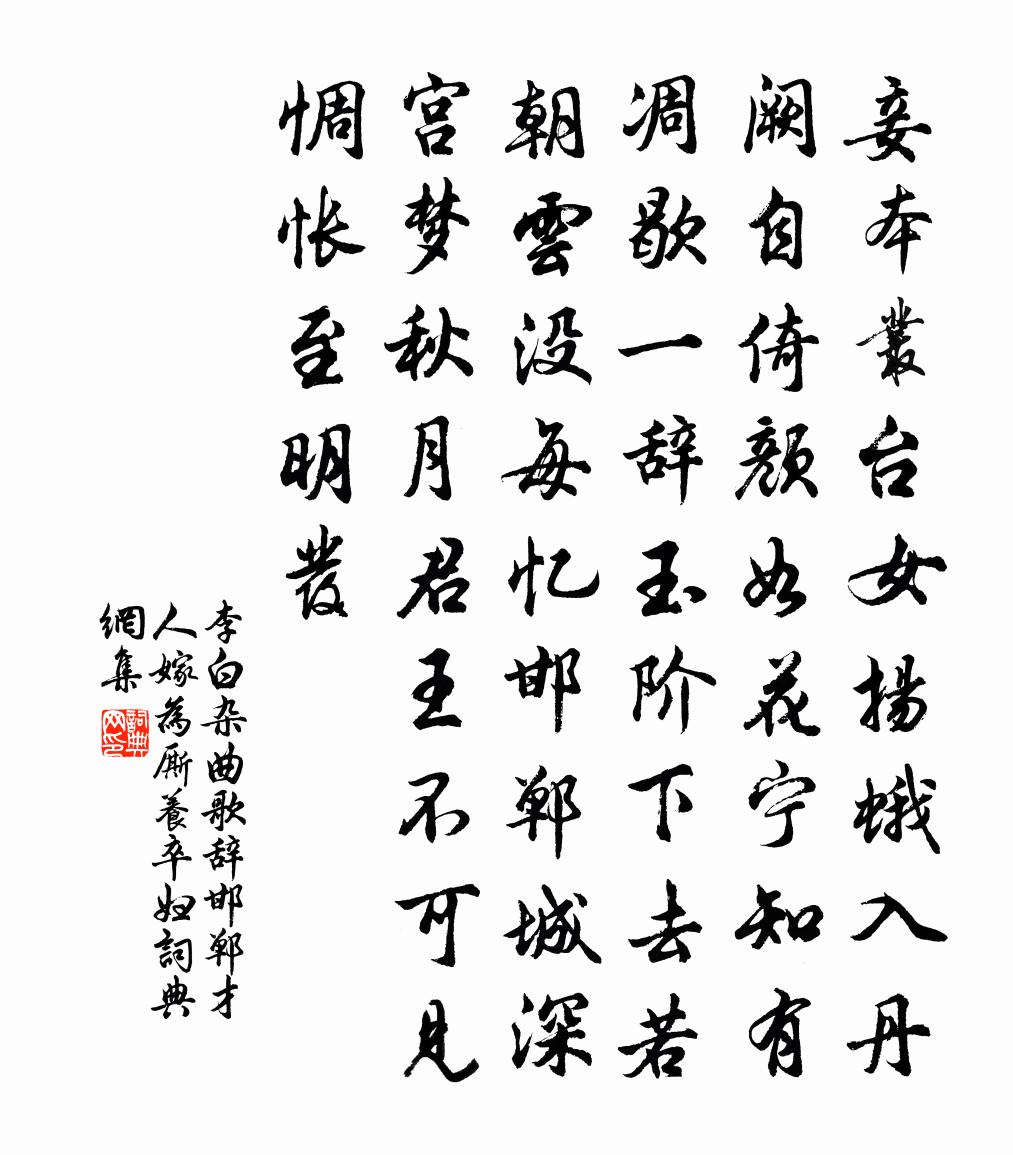 妾本叢台女揚蛾入丹
阙自倚颜如花宁知有
凋歇一辞玉阶下去若
朝雲没每忆邯郸城深
宫梦秋月君王不可見
惆怅至明發
李白杂曲歌辞邯郸才
人嫁為厮養卒妇詞典
網集
詞典
网印